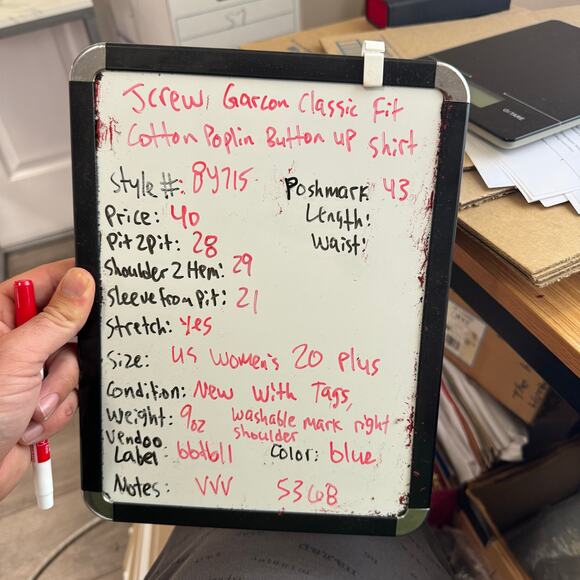 Jcrew, Garcon Classic Fit
Cotton Poplin Button up Shirt
Style #: BY715
Poshmark 43
Price: 40
Length:
Pit 2 pit: 28
Waist:
Shoulder 2 Hem: 29
Sleeve from Pit: 21
Stretch: Yes
Size: US Women's 20 Plus
Condition: New With Tags,
Weight: 9oz washable mark right
shoulder
Vendoo
Label bbtbl1 Color: blue
Notes: VVV